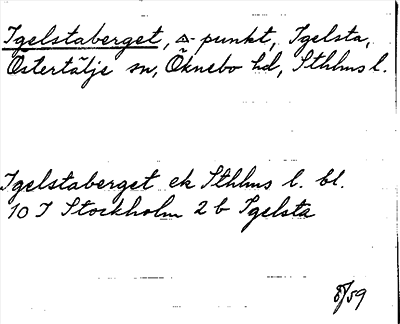 Igelstaberget, △-punkt, Igelsta,
Östertälje sn, Öknebo hd, Sthlms l.
Igelstaberget ek Sthlms l. bl.
10 I Stockholm 2 b Igelsta
8/59